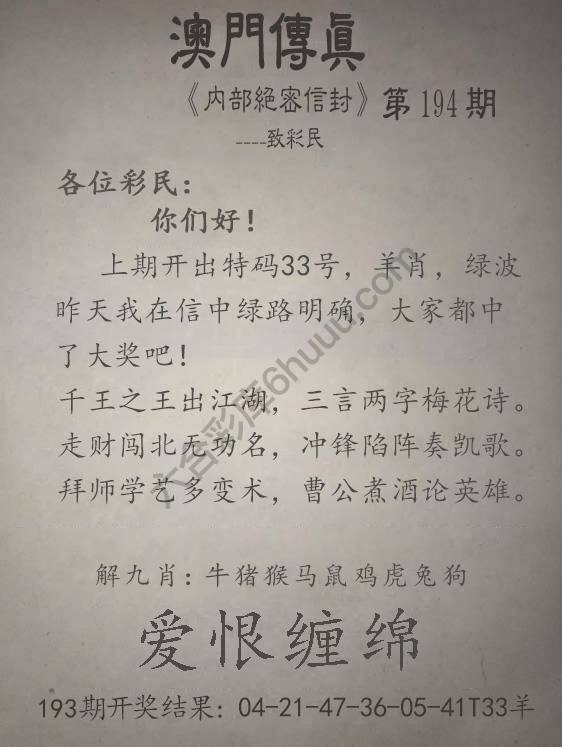 澳門傳眞
《内部絕密信封》第194期
----致彩民
各位彩民：
你们好！
上期开出特码33号，羊肖，绿波
昨天我在信中绿路明确，大家都中
了大奖吧！
千王之王出江湖，三言两字梅花诗。
走财闯北无功名，冲锋陷阵奏凯歌。
拜师学艺多变术，曹公煮酒论英雄。
六合彩库6huuu.com
解九肖：牛猪猴马鼠鸡虎兔狗
爱恨缠绵
193期开奖结果：04-21-47-36-05-41T33羊